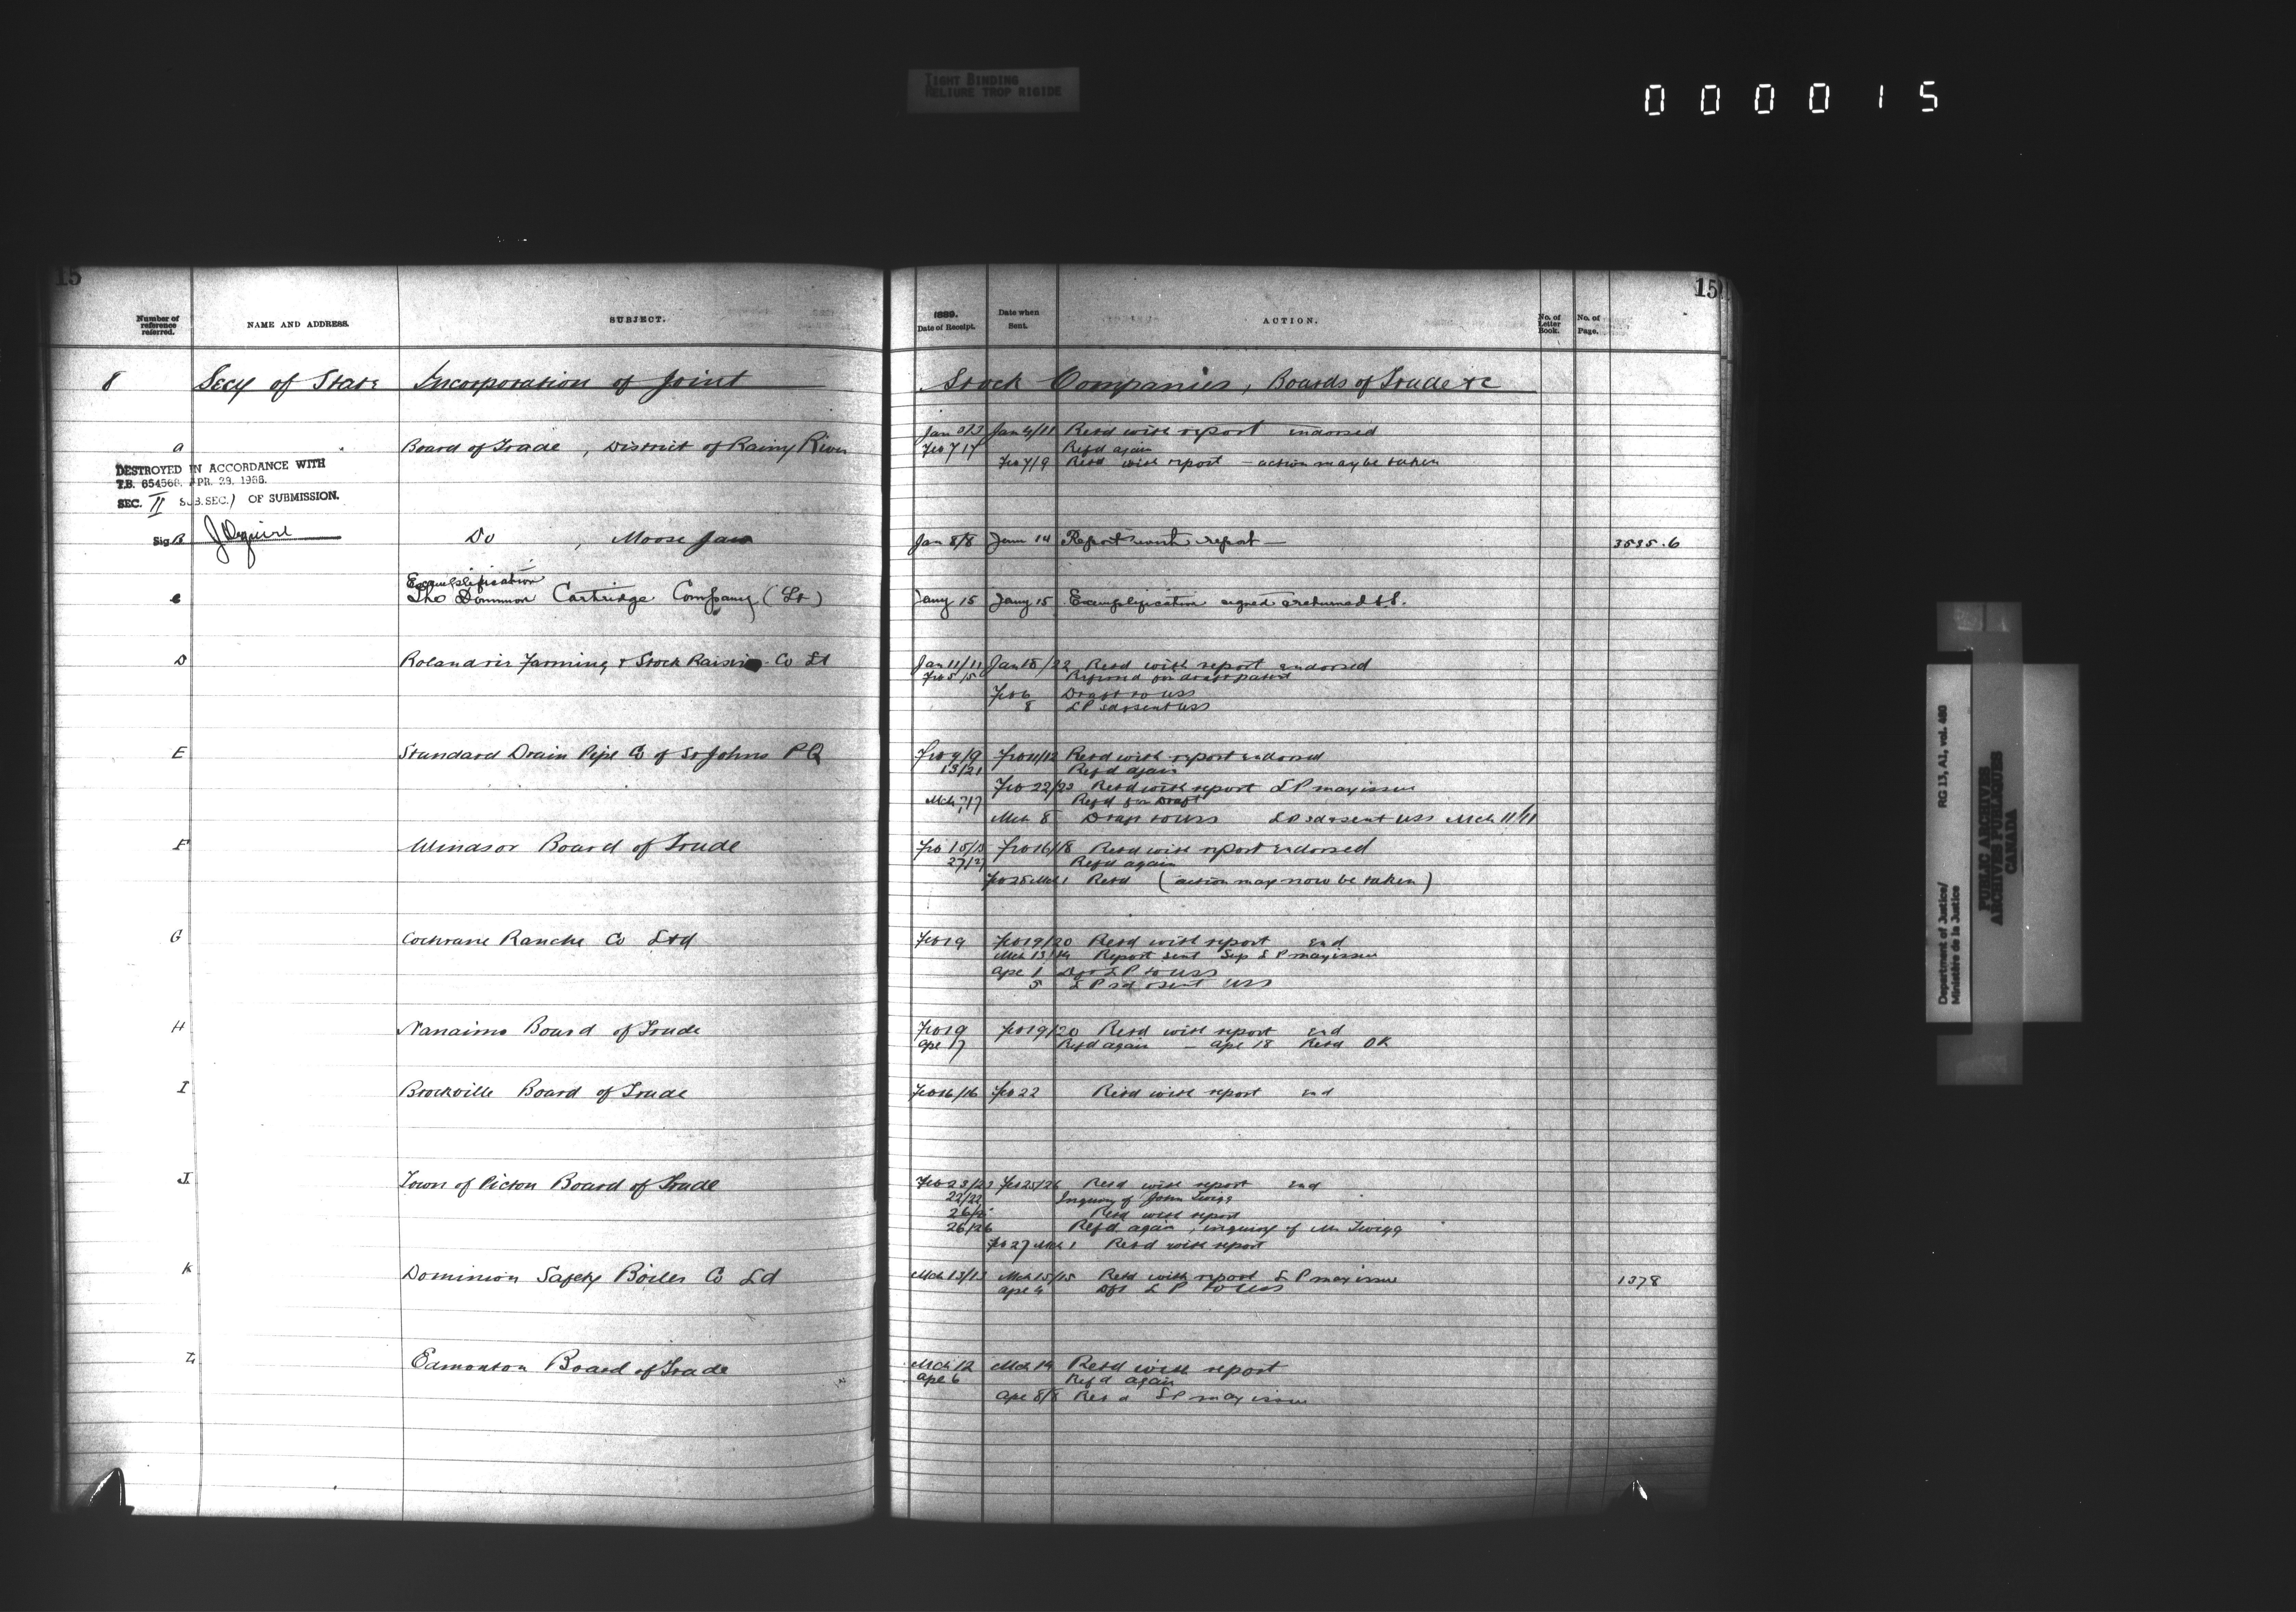 TIGHT BINDING
RELIURE TROP RIGIDE
000015
15
15
Number of reference referred.
NAME AND ADDRESS.
SUBJECT.
1889.
Date of Receipt.
Date when Sent.
ACTION.
No. of Letter Book.
No. of Page.
8 Secy of State Incorporation of Joint Stock Companies, Boards of Trade &c
a Board of Trade, District of Rainy River Jan 4/11 Retd with report endorsed
Feb 7/7 Refd again
Feb 7/9 Retd with report - action may be taken
DESTROYED IN ACCORDANCE WITH
T.B. 654568. APR. 29, 1966.
SEC. II SUB.SEC. 1 OF SUBMISSION.
Sig
B Do, Moose Jaw Jan 8/8 Jan 14 Report with report 3535.6
Exemplification
c The Dominion Cartridge Company (Lt) Jany 15 Jany 15 Exemplification signed & returned S.S.
D Farming & Stock Raising Co Lt Jan 11/11 Jan 18/22 Retd with report endorsed
Feb 5/5 Referred for draft patent
Feb 6 Draft to USS
8 LP sd & sent USS
E Standard Drain Pipe Co of St Johns PQ Feb 9/9 Feb 11/12 Retd with report endorsed
13/21 Refd again
Feb 22/23 Retd with report LP may issue
Mch 7/7 Refd for Draft
Mch 8 Draft to USS LP sd & sent USS Mch 11/11
F Windsor Board of Trade Feb 15/15 Feb 16/18 Retd with report endorsed
27/27 Refd again
Feb 28 Mch 1 Retd (action may now be taken)
G Cochrane Ranche Co Ltd Feb 19 Feb 19/20 Retd with report end
Mch 13/14 Report sent Sup LP may issue
Ape 1 Dft LP to USS
5 LP sd & sent USS
H Nanaimo Board of Trade Feb 19 Feb 19/20 Retd with report end
Ape 17 Refd again - Ape 18 Retd OK
I Brockville Board of Trade Feb 16/16 Feb 22 Retd with report end
J. Town of Picton Board of Trade Feb 23/23 Feb 25/26 Retd with report end
22/22 Inquiry of John Twigg
Retd with report
26/26 Refd again, inquiry of Mr Twigg
Feb 27 Mch 1 Retd with report
K Dominion Safety Boiler Co Ld Mch 13/13 Mch 15/15 Retd with report LP may issue 1378
Ape 4 Dft LP to USS
L Edmonton Board of Trade Mch 12 Mch 14 Retd with report
Ape 6 Refd again
Ape 8/8 Retd LP may issue
Department of Justice/
Ministère de la Justice
RG 13, A1, vol. 460
PUBLIC ARCHIVES
ARCHIVES PUBLIQUES
CANADA